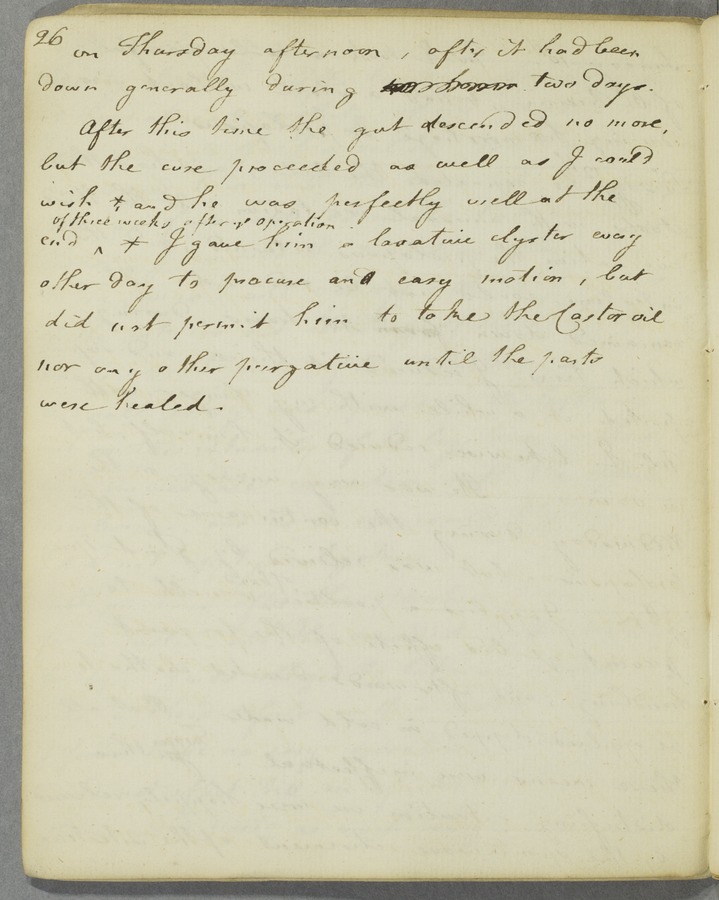 26
on Thursday afternoon, after it had been
down generally during two days.
After this time the gut descended no more,
but the cure proceeded as well as I could
wish ‡ and he was perfectly well at the
of three weeks after ye operation
end ^ ‡ I gave him a laxative clyster every
other day to procure and easy motion, but
did not permit him to take the Castor oil
nor any other purgative until the parts
were healed.